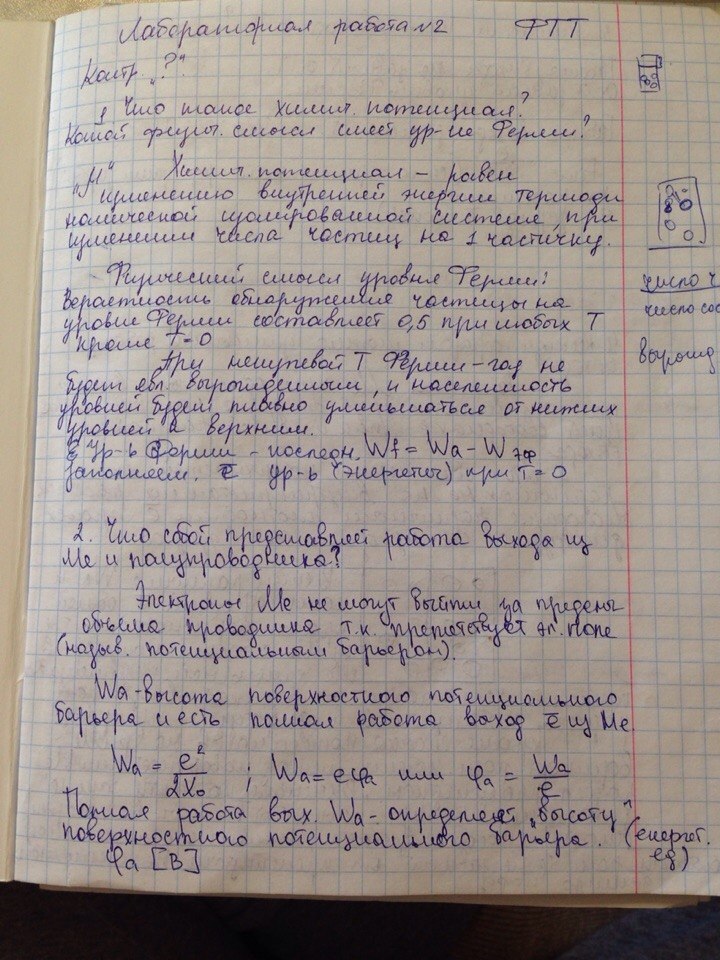 Лабораторная работа №2 ФТТ
Контр „?“
1 Что такое химич. потенциал?
Какой физич. смысл имеет ур-ие Ферми?
„М“ Химич. потенциал – равен
изменению внутренней энергии термоди
намической изолированной системе, при
изменении числа частиц на 1 частичку.
Физический смысл уровня Ферми:
Вероятность обнаружения частицы на
уровне Ферми составляет 0,5 при любых Т
кроме Т=0
При ненулевой Т Ферми-газ не
будет явл. вырожденным, и населенность
уровней будет плавно уменьшаться от нижних
уровней к верхним.
Ур-ь Ферми – последн. Wf = Wa – Wэф
заполняем. ē ур-ь (энергетич) при Т=0
2. Что собой представляет работа выхода из
Ме и полупроводника?
Электроны Ме не могут выйти за пределы
объема проводника т.к. препятствует эл. поле
(назыв. потенциальным барьером).
Wa-высота поверхностного потенциального
барьера и есть полная работа выход ē из Ме.
Wa = e²/2X₀ ; Wa = eφa или φa = Wa/e
Полная работа вых. Wa – определяет „высоту“
поверхностного потенциального барьера. (енергет.
φa [В] ед)
число ч
число сос
вырожд